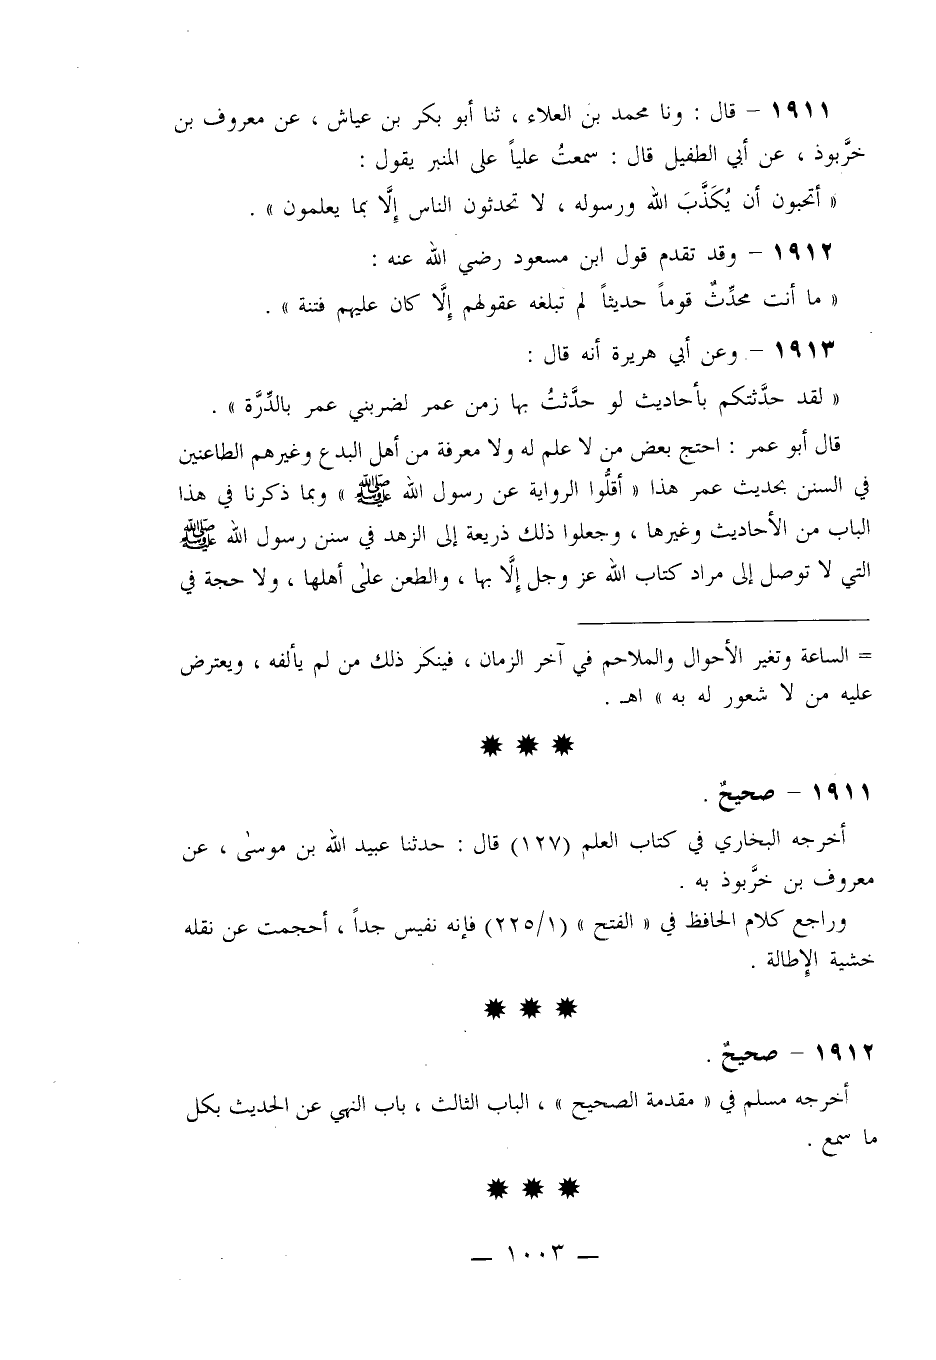 ١٩١١ – قال : ونا محمد بن العلاء ، ثنا أبو بكر بن عياش ، عن معروف بن
خرَّبوذ ، عن أبي الطفيل قال : سمعتُ علياً على المنبر يقول :
« أتحبون أن يُكَذَّبَ الله ورسوله ، لا تحدثون الناس إلَّا بما يعلمون » .
١٩١٢ – وقد تقدم قول ابن مسعود رضي الله عنه :
« ما أنت محدِّثٌ قوماً حديثاً لم تبلغه عقولهم إلَّا كان عليهم فتنة » .
١٩١٣ – وعن أبي هريرة أنه قال :
« لقد حدَّثتكم بأحاديث لو حدَّثتُ بها زمن عمر لضربني عمر بالدِّرَّة » .
قال أبو عمر : احتج بعض من لا علم له ولا معرفة من أهل البدع وغيرهم الطاعنين
في السنن بحديث عمر هذا « أقلُّوا الرواية عن رسول الله ﷺ » وبما ذكرنا في هذا
الباب من الأحاديث وغيرها ، وجعلوا ذلك ذريعة إلى الزهد في سنن رسول الله ﷺ
التي لا توصل إلى مراد كتاب الله عز وجل إلَّا بها ، والطعن علىٰ أهلها ، ولا حجة في
= الساعة وتغير الأحوال والملاحم في آخر الزمان ، فينكر ذلك من لم يألفه ، ويعترض
عليه من لا شعور له به » اهـ .
١٩١١ – صحيحٌ .
أخرجه البخاري في كتاب العلم (١٢٧) قال : حدثنا عبيد الله بن موسىٰ ، عن
معروف بن خرَّبوذ به .
وراجع كلام الحافظ في « الفتح » (٢٢٥/١) فإنه نفيس جداً ، أحجمت عن نقله
خشية الإطالة .
١٩١٢ – صحيحٌ .
أخرجه مسلم في « مقدمة الصحيح » ، الباب الثالث ، باب النهي عن الحديث بكل
ما سمع .
— ١٠٠٣ —